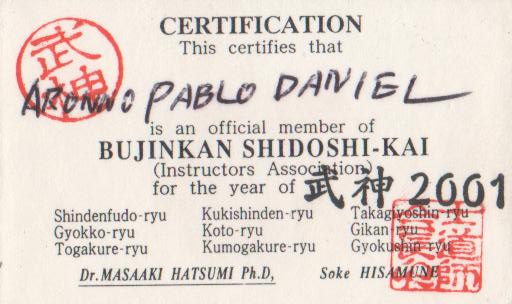 CERTIFICATION
This certifies that
武神
ARONNO PABLO DANIEL
is an official member of
BUJINKAN SHIDOSHI-KAI
(Instructors Association)
for the year of 武神 2001
Shindenfudo-ryu Kukishinden-ryu Takagiyoshin-ryu
Gyokko-ryu Koto-ryu Gikan-ryu
Togakure-ryu Kumogakure-ryu Gyokushin-ryu
Dr.MASAAKI HATSUMI Ph.D, Soke HISAMUNE